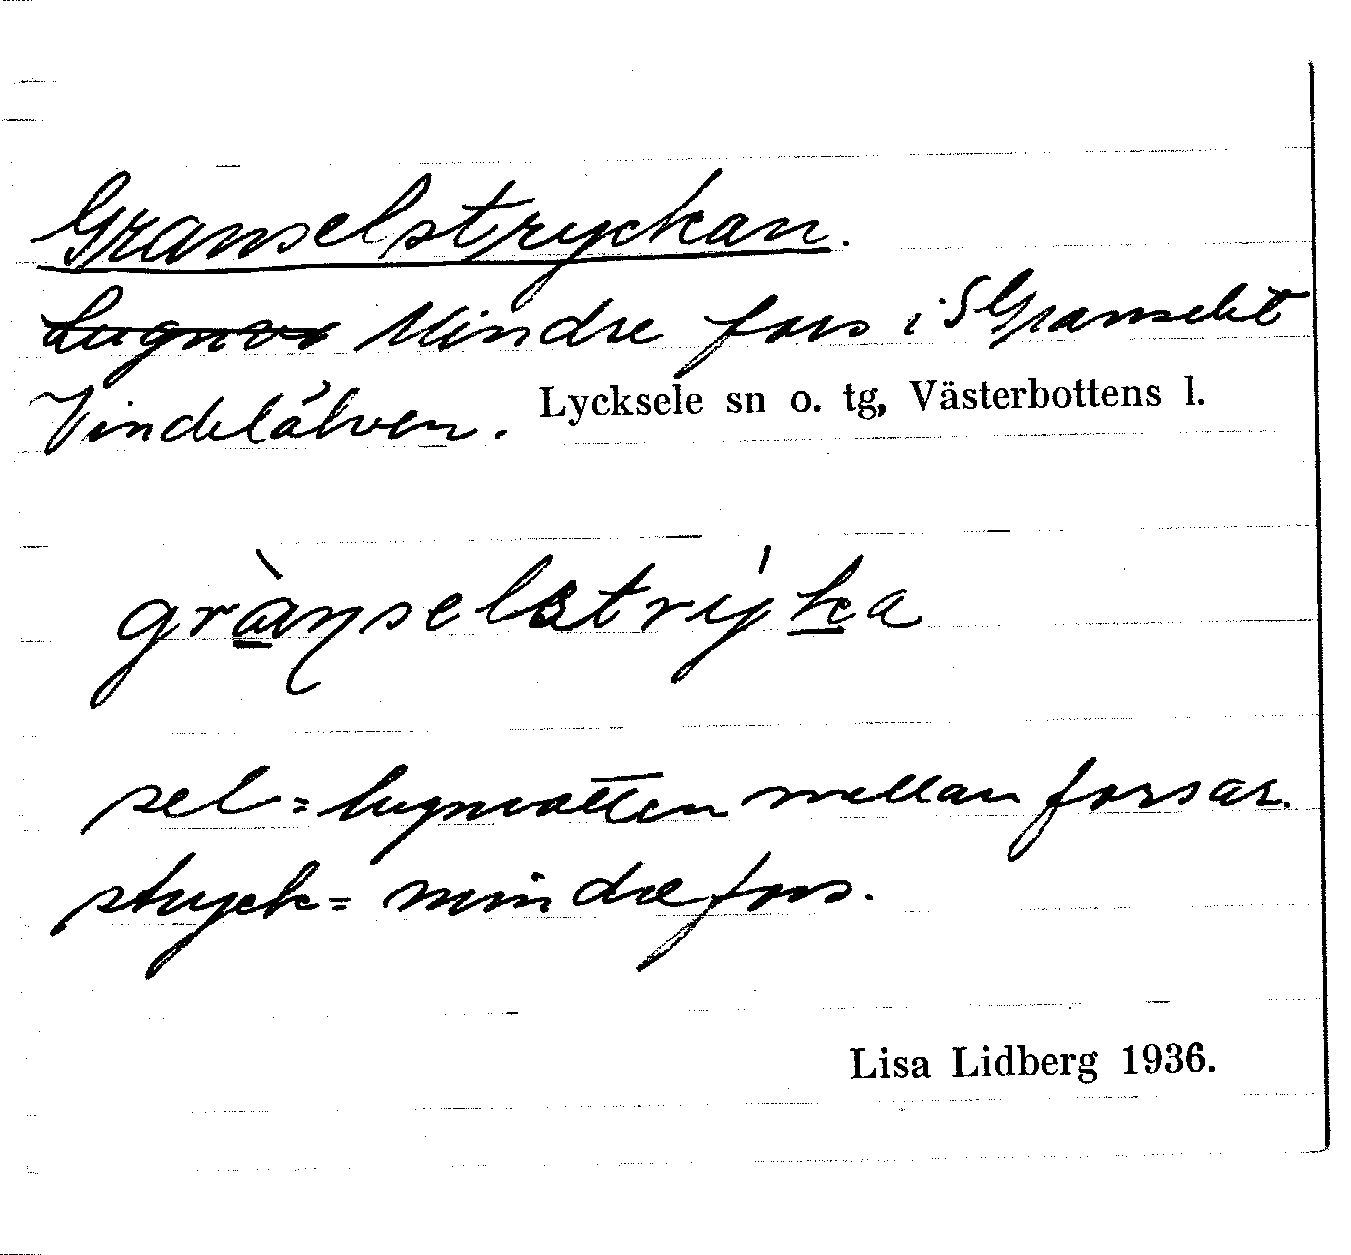 Granselstryckan.
Lugnva Mindre fors i S Granselet
Vindelälven. Lycksele sn o. tg, Västerbottens l.
grànselstrýka
sel = lugnvatten mellan forsar.
stryck = mindre fors.
Lisa Lidberg 1936.